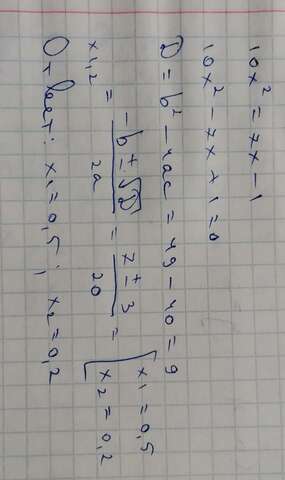 10x² = 7x - 1
10x² - 7x + 1 = 0
D = b² - 4ac = 49 - 40 = 9
x₁,₂ = (-b ± √D) / 2a = (7 ± 3) / 20 = [ x₁ = 0,5
x₂ = 0,2
Ответ: x₁ = 0,5 ; x₂ = 0,2